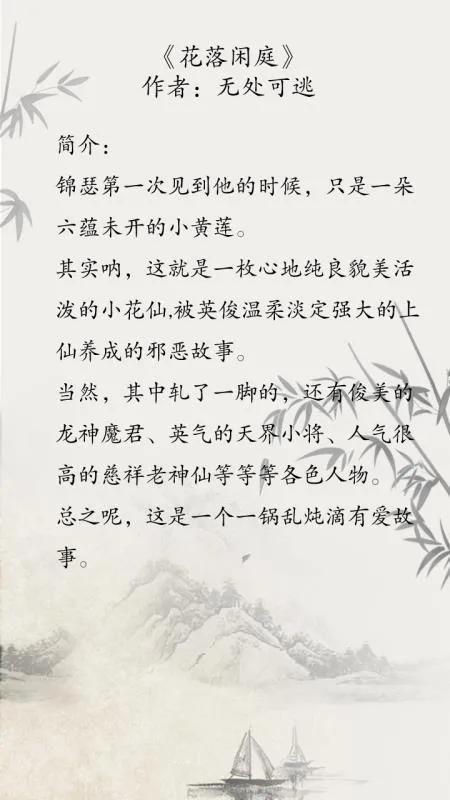 《花落闲庭》
作者：无处可逃
简介：
锦瑟第一次见到他的时候，只是一朵
六蕴未开的小黄莲。
其实呐，这就是一枚心地纯良貌美活
泼的小花仙,被英俊温柔淡定强大的上
仙养成的邪恶故事。
当然，其中轧了一脚的，还有俊美的
龙神魔君、英气的天界小将、人气很
高的慈祥老神仙等等等各色人物。
总之呢，这是一个一锅乱炖滴有爱故
事。